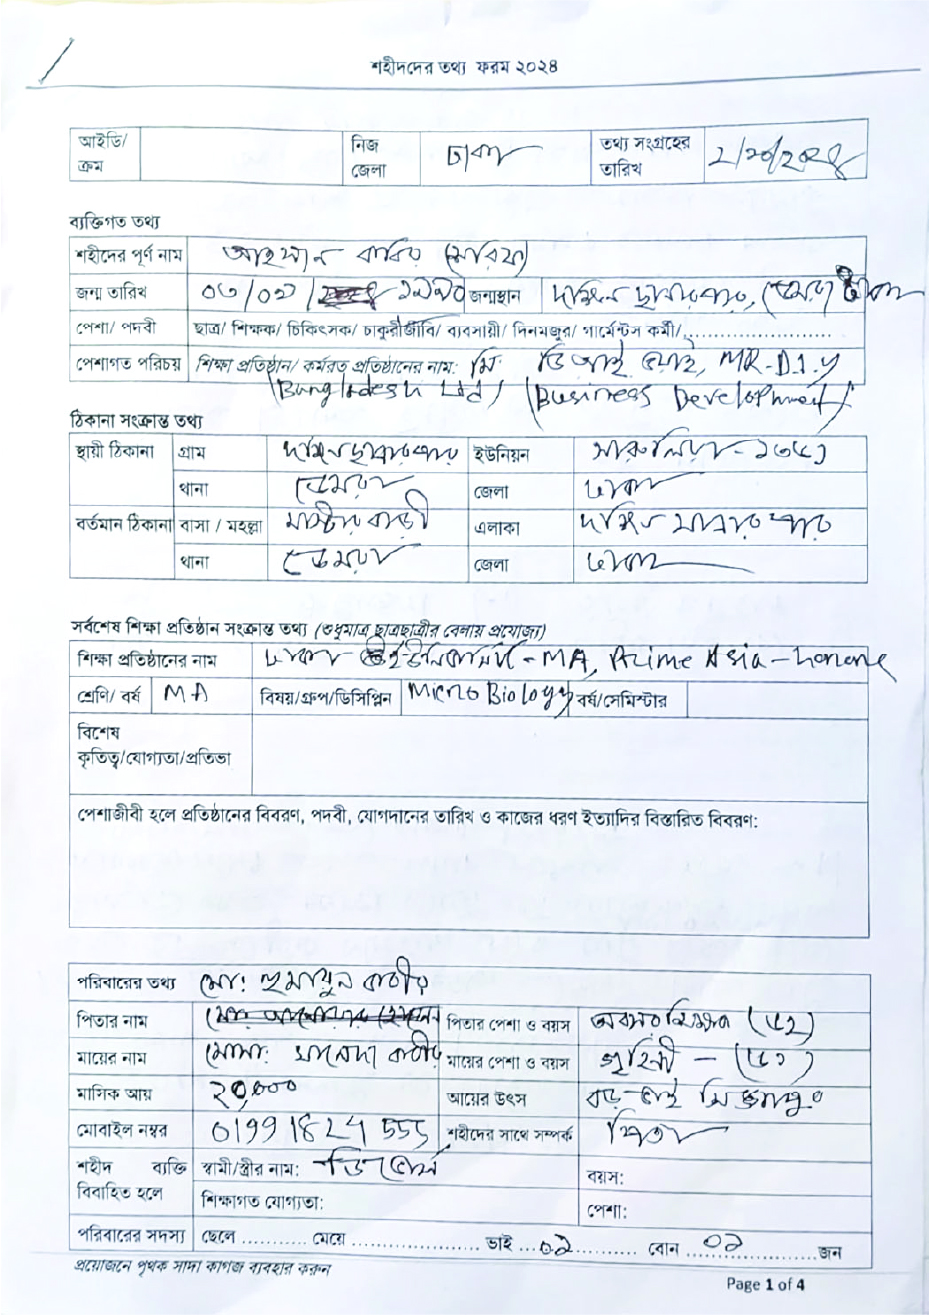 শহীদদের তথ্য ফরম ২০২৪
আইডি/ ক্রম নিজ জেলা ঢাকা তথ্য সংগ্রহের তারিখ ২/১০/২০২৪
ব্যক্তিগত তথ্য
শহীদের পূর্ণ নাম আহসান কবির (শরিফ)
জন্ম তারিখ ০৩/০১/ ১৯৯০ জন্মস্থান ঢাকা
পেশা/ পদবী ছাত্র/ শিক্ষক/ চিকিৎসক/ চাকুরীজীবি/ ব্যবসায়ী/ দিনমজুর/ গার্মেন্টস কর্মী/..........................
পেশাগত পরিচয় শিক্ষা প্রতিষ্ঠান/ কর্মরত প্রতিষ্ঠানের নাম: মি: ডি আই ওয়াই, MR.D.I.Y
(Bangladesh Ltd) (Business Development)
ঠিকানা সংক্রান্ত তথ্য
স্থায়ী ঠিকানা গ্রাম ইউনিয়ন সারুলিয়া-১৩৬১
থানা ডেমরা জেলা ঢাকা
বর্তমান ঠিকানা বাসা / মহল্লা মাস্টার বাড়ী এলাকা দক্ষিন
থানা ডেমরা জেলা ঢাকা
সর্বশেষ শিক্ষা প্রতিষ্ঠান সংক্রান্ত তথ্য (শুধুমাত্র ছাত্রছাত্রীর বেলায় প্রযোজ্য)
শিক্ষা প্রতিষ্ঠানের নাম ঢাকা ইউনিভার্সিটি - MA, Prime Asia -
শ্রেণি/ বর্ষ MA বিষয়/গ্রুপ/ডিসিপ্লিন Micro Biology বর্ষ/সেমিস্টার
বিশেষ
কৃতিত্ব/যোগ্যতা/প্রতিভা
পেশাজীবী হলে প্রতিষ্ঠানের বিবরণ, পদবী, যোগদানের তারিখ ও কাজের ধরণ ইত্যাদির বিস্তারিত বিবরণ:
পরিবারের তথ্য মো: হুমায়ুন কবীর
পিতার নাম পিতার পেশা ও বয়স
মায়ের নাম মোসা: কবীর মায়ের পেশা ও বয়স গৃহিনী - (৫১)
মাসিক আয় ২০,০০০ আয়ের উৎস বড়-ভাই
মোবাইল নম্বর 01991824555 শহীদের সাথে সম্পর্ক পিতা
শহীদ ব্যক্তি বিবাহিত হলে স্বামী/স্ত্রীর নাম: বয়স:
শিক্ষাগত যোগ্যতা: পেশা:
পরিবারের সদস্য ছেলে ........... মেয়ে ...................... ভাই ...০১............ বোন ০১ .................... জন
প্রয়োজনে পৃথক সাদা কাগজ ব্যবহার করুন
Page 1 of 4